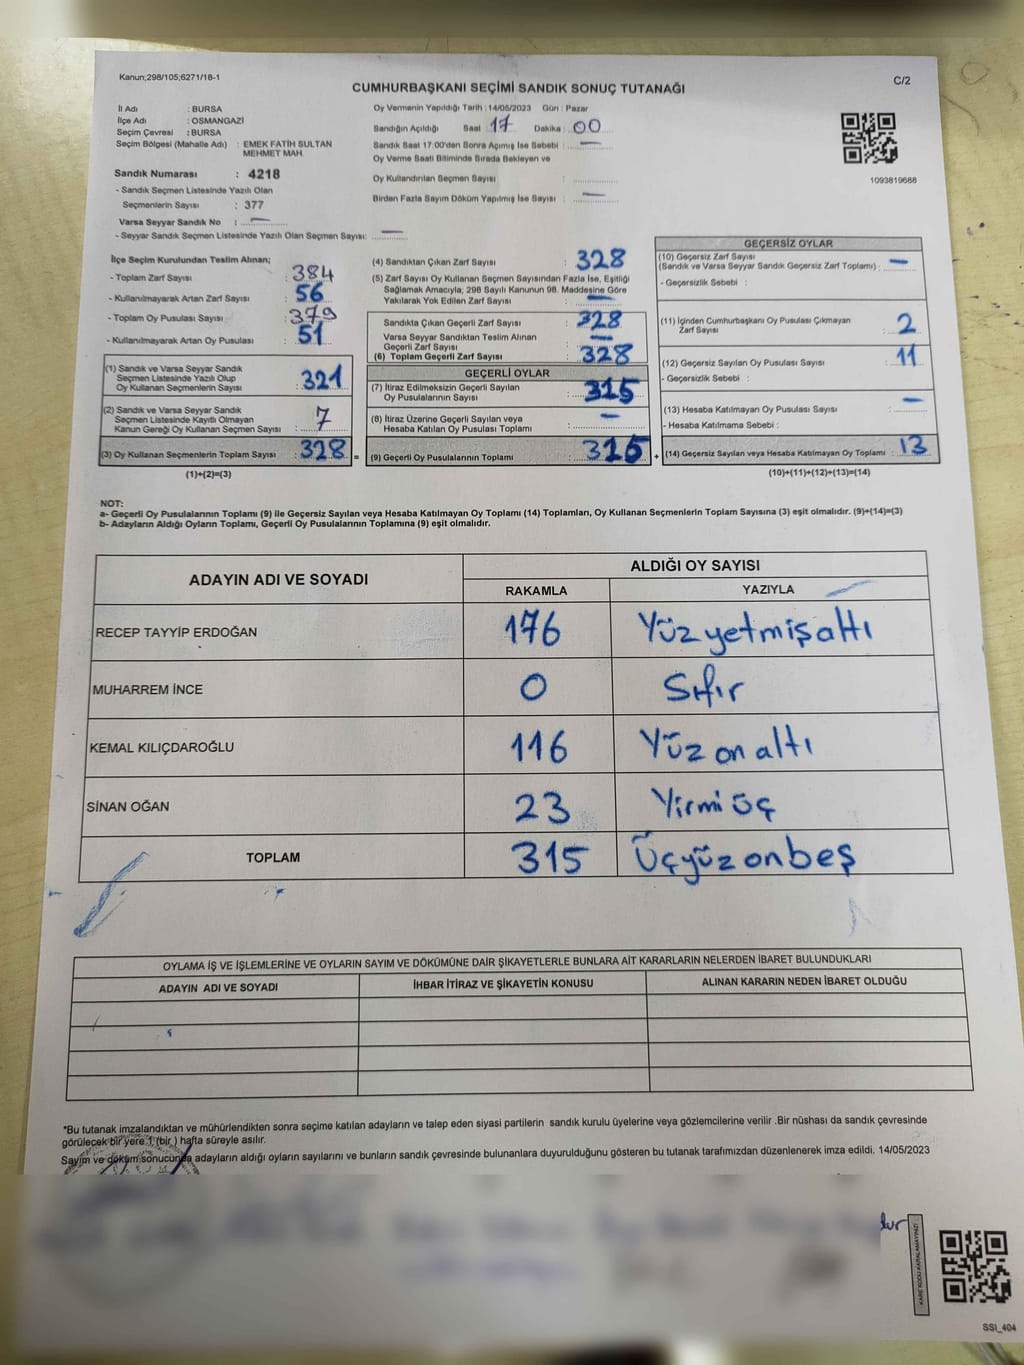 Kanun;298/105;6271/18-1
C/2
CUMHURBAŞKANI SEÇİMİ SANDIK SONUÇ TUTANAĞI
İl Adı : BURSA
İlçe Adı : OSMANGAZİ
Seçim Çevresi : BURSA
Seçim Bölgesi (Mahalle Adı) : EMEK FATİH SULTAN
MEHMET MAH.
Sandık Numarası : 4218
- Sandık Seçmen Listesinde Yazılı Olan
Seçmenlerin Sayısı : 377
Varsa Seyyar Sandık No : —
- Seyyar Sandık Seçmen Listesinde Yazılı Olan Seçmen Sayısı: —
Oy Vermenin Yapıldığı Tarih : 14/05/2023 Gün : Pazar
Sandığın Açıldığı Saat : 17 Dakika : 00
Sandık Saat 17:00'den Sonra Açımış İse Sebebi : —
Oy Verme Saati Bitiminde Sırada Bekleyen ve
Oy Kullandırılan Seçmen Sayısı :
Birden Fazla Sayım Döküm Yapılmış İse Sayısı : —
1093819688
İlçe Seçim Kurulundan Teslim Alınan;
- Toplam Zarf Sayısı : 384
- Kullanılmayarak Artan Zarf Sayısı : 56
- Toplam Oy Pusulası Sayısı : 379
- Kullanılmayarak Artan Oy Pusulası : 51
(1) Sandık ve Varsa Seyyar Sandık
Seçmen Listesinde Yazılı Olup
Oy Kullanan Seçmenlerin Sayısı : 321
(2) Sandık ve Varsa Seyyar Sandık
Seçmen Listesinde Kayıtlı Olmayan
Kanun Gereği Oy Kullanan Seçmen Sayısı : 7
(3) Oy Kullanan Seçmenlerin Toplam Sayısı : 328
(1)+(2)=(3)
=
(4) Sandıktan Çıkan Zarf Sayısı : 328
(5) Zarf Sayısı Oy Kullanan Seçmen Sayısından Fazla İse, Eşitliği
Sağlamak Amacıyla; 298 Sayılı Kanunun 98. Maddesine Göre
Yakılarak Yok Edilen Zarf Sayısı : —
Sandıkta Çıkan Geçerli Zarf Sayısı : 328
Varsa Seyyar Sandıktan Teslim Alınan
Geçerli Zarf Sayısı : —
(6) Toplam Geçerli Zarf Sayısı : 328
GEÇERLİ OYLAR
(7) İtiraz Edilmeksizin Geçerli Sayılan
Oy Pusulalarının Sayısı : 315
(8) İtiraz Üzerine Geçerli Sayılan veya
Hesaba Katılan Oy Pusulası Toplamı : —
(9) Geçerli Oy Pusulalarının Toplamı : 315
+
GEÇERSİZ OYLAR
(10) Geçersiz Zarf Sayısı
(Sandık ve Varsa Seyyar Sandık Geçersiz Zarf Toplamı) : —
- Geçersizlik Sebebi :
(11) İçinden Cumhurbaşkanı Oy Pusulası Çıkmayan
Zarf Sayısı : 2
(12) Geçersiz Sayılan Oy Pusulası Sayısı : 11
- Geçersizlik Sebebi :
(13) Hesaba Katılmayan Oy Pusulası Sayısı : —
- Hesaba Katılmama Sebebi :
(14) Geçersiz Sayılan veya Hesaba Katılmayan Oy Toplamı : 13
(10)+(11)+(12)+(13)=(14)
NOT:
a- Geçerli Oy Pusulalarının Toplamı (9) ile Geçersiz Sayılan veya Hesaba Katılmayan Oy Toplamı (14) Toplamları, Oy Kullanan Seçmenlerin Toplam Sayısına (3) eşit olmalıdır. (9)+(14)=(3)
b- Adayların Aldığı Oyların Toplamı, Geçerli Oy Pusulalarının Toplamına (9) eşit olmalıdır.
ADAYIN ADI VE SOYADI
ALDIĞI OY SAYISI
RAKAMLA YAZIYLA
RECEP TAYYİP ERDOĞAN 176 Yüz yetmiş altı
MUHARREM İNCE 0 Sıfır
KEMAL KILIÇDAROĞLU 116 Yüz on altı
SİNAN OĞAN 23 Yirmi üç
TOPLAM 315 Üçyüz onbeş
OYLAMA İŞ VE İŞLEMLERİNE VE OYLARIN SAYIM VE DÖKÜMÜNE DAİR ŞİKAYETLERLE BUNLARA AİT KARARLARIN NELERDEN İBARET BULUNDUKLARI
ADAYIN ADI VE SOYADI İHBAR İTİRAZ VE ŞİKAYETİN KONUSU ALINAN KARARIN NEDEN İBARET OLDUĞU
*Bu tutanak imzalandıktan ve mühürlendikten sonra seçime katılan adayların ve talep eden siyasi partilerin sandık kurulu üyelerine veya gözlemcilerine verilir .Bir nüshası da sandık çevresinde
görülecek bir yere 1 (bir ) hafta süreyle asılır.
Sayım ve döküm sonucunda adayların aldığı oyların sayılarını ve bunların sandık çevresinde bulunanlara duyurulduğunu gösteren bu tutanak tarafımızdan düzenlenerek imza edildi. 14/05/2023
KARE KODU KARALAMAYINIZ!
SSI_404